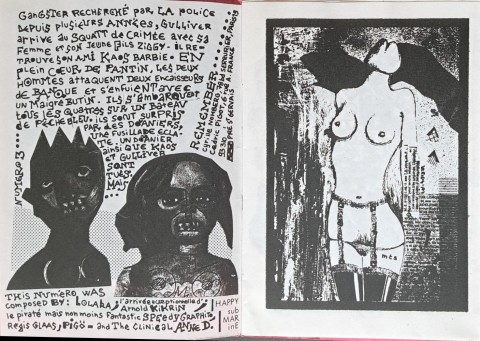 GANGSTER RECHERCHÉ PAR LA POLICE
DEPUIS PLUSIEURS ANNÉES, GULLIVER
ARRIVE AU SQUATT DE CRIMÉE AVEC SA
FEMME ET SON JEUNE FILS ZIGGY. IL RE-
TROUVE SON AMI KAOS BARBIE. EN
PLEIN CŒUR DE PANTIN, LES DEUX
HOMMES ATTAQUENT DEUX ENCAISSEURS
DE BANQUE ET S'ENFUIENT AVEC
UN MAIGRE BUTIN. ILS S'EMBARQUENT
TOUS LES QUATRES SUR UN BATEAU
DE PÊCHE BLEU. ILS SONT SURPRIS
PAR DES DOUANIERS,
UNE FUSILLADE ÉCLA-
TE.
AINSI QUE KAOS
ET GULLIVER
SONT
TUÉS.
MAIS...
REMEMBER...
NUMERO 3...
THIS NUMERO WAS
COMPOSED BY: LOLAHA,
l'arrivée exceptionnelle d'
Arnold KIKRIN
le piraté mais non moins Fantastic SPEEDY GRAPHITO
Regis GLAAS, PIGÖ - and THE CLINICAL ANNE D.
HAPPY
sub
MAR
inE